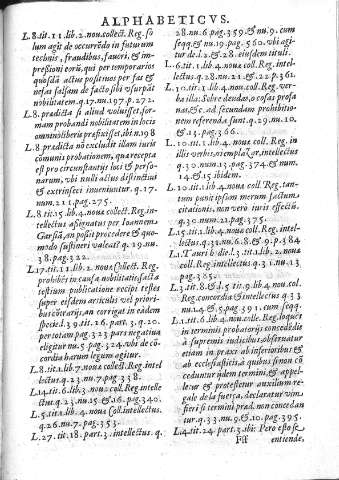 ALPHABETICVS.
L.8.tit.11.lib.2.nou.collect.Reg.so
lum agit de occurrēdo in futurum
technis, fraudibus, fauori, & im
pressioni eorū, qui per temporarios
quosdā actus positiuos per fas &
nefas falsam de facto sibi vsurpāt
nobilitatem.q.17.nu.197.p.272.
L.8 prædicta si aliud voluisset, for
mam probandi nobilitatem in locis
omnino liberis præfixisset, ibi.n.198
L.8 prædicta nō excludit illam iuris
cōmunis probationem, quæ recepta
est pro circunstantijs loci & perso-
narum, vbi nulli actus distinctius
& extrinseci inueniuntur. q. 17.
num.211.pag.275.
L.8 tit.15.lib.4.noua collect. Reg.in-
tellectus assignatus per Ioannem
Garsiā, an possit procedere & quo-
modo sustineri valeat? q. 29. nu.
38.pag.322.
L.17.tit.11.lib.2.nou.Collect.Reg.
prohibēs in causa nobilitatis, facta
testium publicatione recipi testes
super eisdem articulis vel priori-
bus cōtrarijs, an corrigat in eādem
specie.l.39.tit.16.part.3.q.20.
per totam pag.323.pars negatiua
eligitur nu.5.pag.324.vbi de cō-
cordia harum legum agitur.
L.8.tit.1.lib.7.noua collect.Reg.intel
lectus.q.23.nu.7.pag.338.
L.14.tit.6.lib.3.nou.coll.Reg. intelle
ctus.q.23.nu.15.& 16.pag.340.
L.5.tit.1.lib.4.noua Coll.intellectus.
q.26.nu.7.pag.353.
L.27.tit.18.part.3.intellectus. q.
28.nu.6.pag.359.& nu.9. cum
seqq.& nu.19.pag.560.vbi agi-
tur de.l.2.& 28.eiusdem tituli.
L.6.tit.1.lib.4.noua coll. Reg.intel-
lectus.q.28.nu.21.& 22.p.361.
L.10.tit.1.lib.4.noua coll.Reg. ver-
ba illa: Sobre deudas, o cosas prosa
nas, &c. ad secundam probibitio-
nem referenda sunt.q.29.nu.10.
& 15.pag.366.
L.10.tit.1.lib.4.noua coll.Reg. in
illis verbis, ni emplazar, intellectus
q.30.num.13.pag.374.& num.
14.& 15.ibidem.
L.10.tit.1.lib.4.noua coll.Reg. tan-
tum punit ipsum merum factum
citationis, non verò iuris effectū.
q.30.num.21.pag.375.
L.15.tit.1.lib.4.noua coll. Reg.intel-
lectus.q.31.nu.6.8.& 9.p.384
L.1. Tauri bodie.l.3.tit.1.lib.2.noua
coll.Reg intellectus q.31.nu.13
pag.385.
L.3.tit.8.& l.5.tit.9.lib.4.nou.col.
Reg.concordia & intellectus q.33
nu.5.& pag.391.cum seqq.
L.1.tit.6.lib.4.nou.collec. Reg.loquēs
in terminis probatorijs concedēdis
à supremis iudicibus, obseruatur
etiam in praxi ab inferioribus &
ab ecclesiasticis, à quibus sinon cō
ceduntur ijdem termini, & appel-
latur & protestetur auxilium re-
gale de la fuerça, declaratur vim
fieri si termini præd. non concedan
tur.q.33.nu.16.pag.395.
L.4.tit.24.part.3.ibi: Pero esto se
Fff entende,